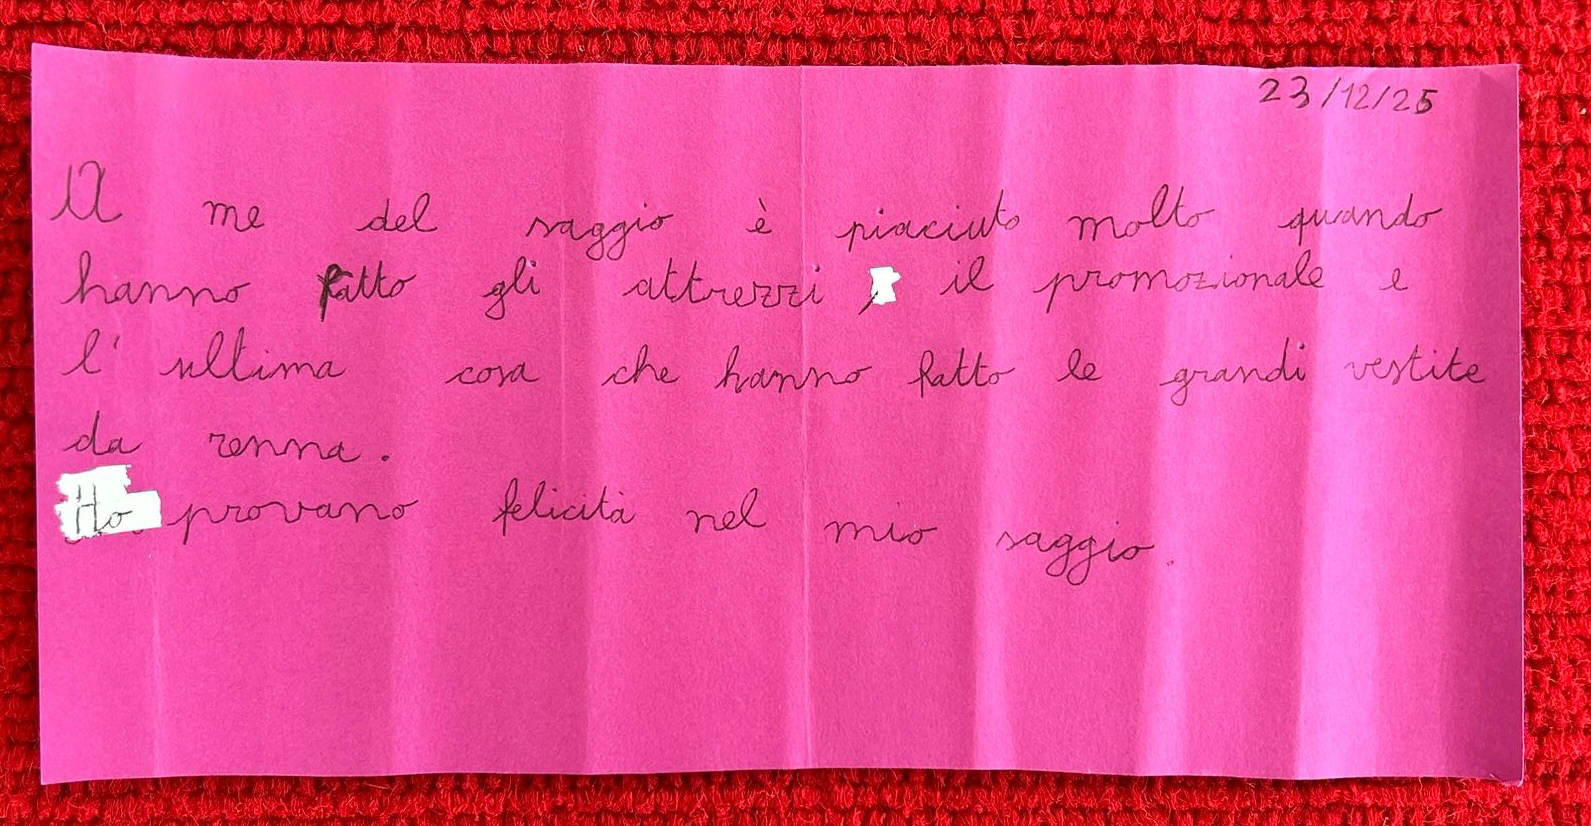 23/12/25
A me del saggio è piaciuto molto quando
hanno fatto gli attrezzi, il promozionale e
l'ultima cosa che hanno fatto le grandi vestite
da renna.
Ho provano felicità nel mio saggio.